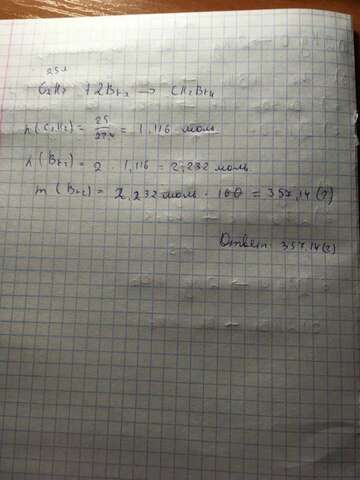 25 л
C₂H₂ + 2Br₂ → CH₂Br₄
n(C₂H₂) = 25/22,4 = 1,116 моль
n(Br₂) = 2 · 1,116 = 2,232 моль
m(Br₂) = 2,232 моль · 160 = 357,14 (г)
Ответ: 357,14 (г)